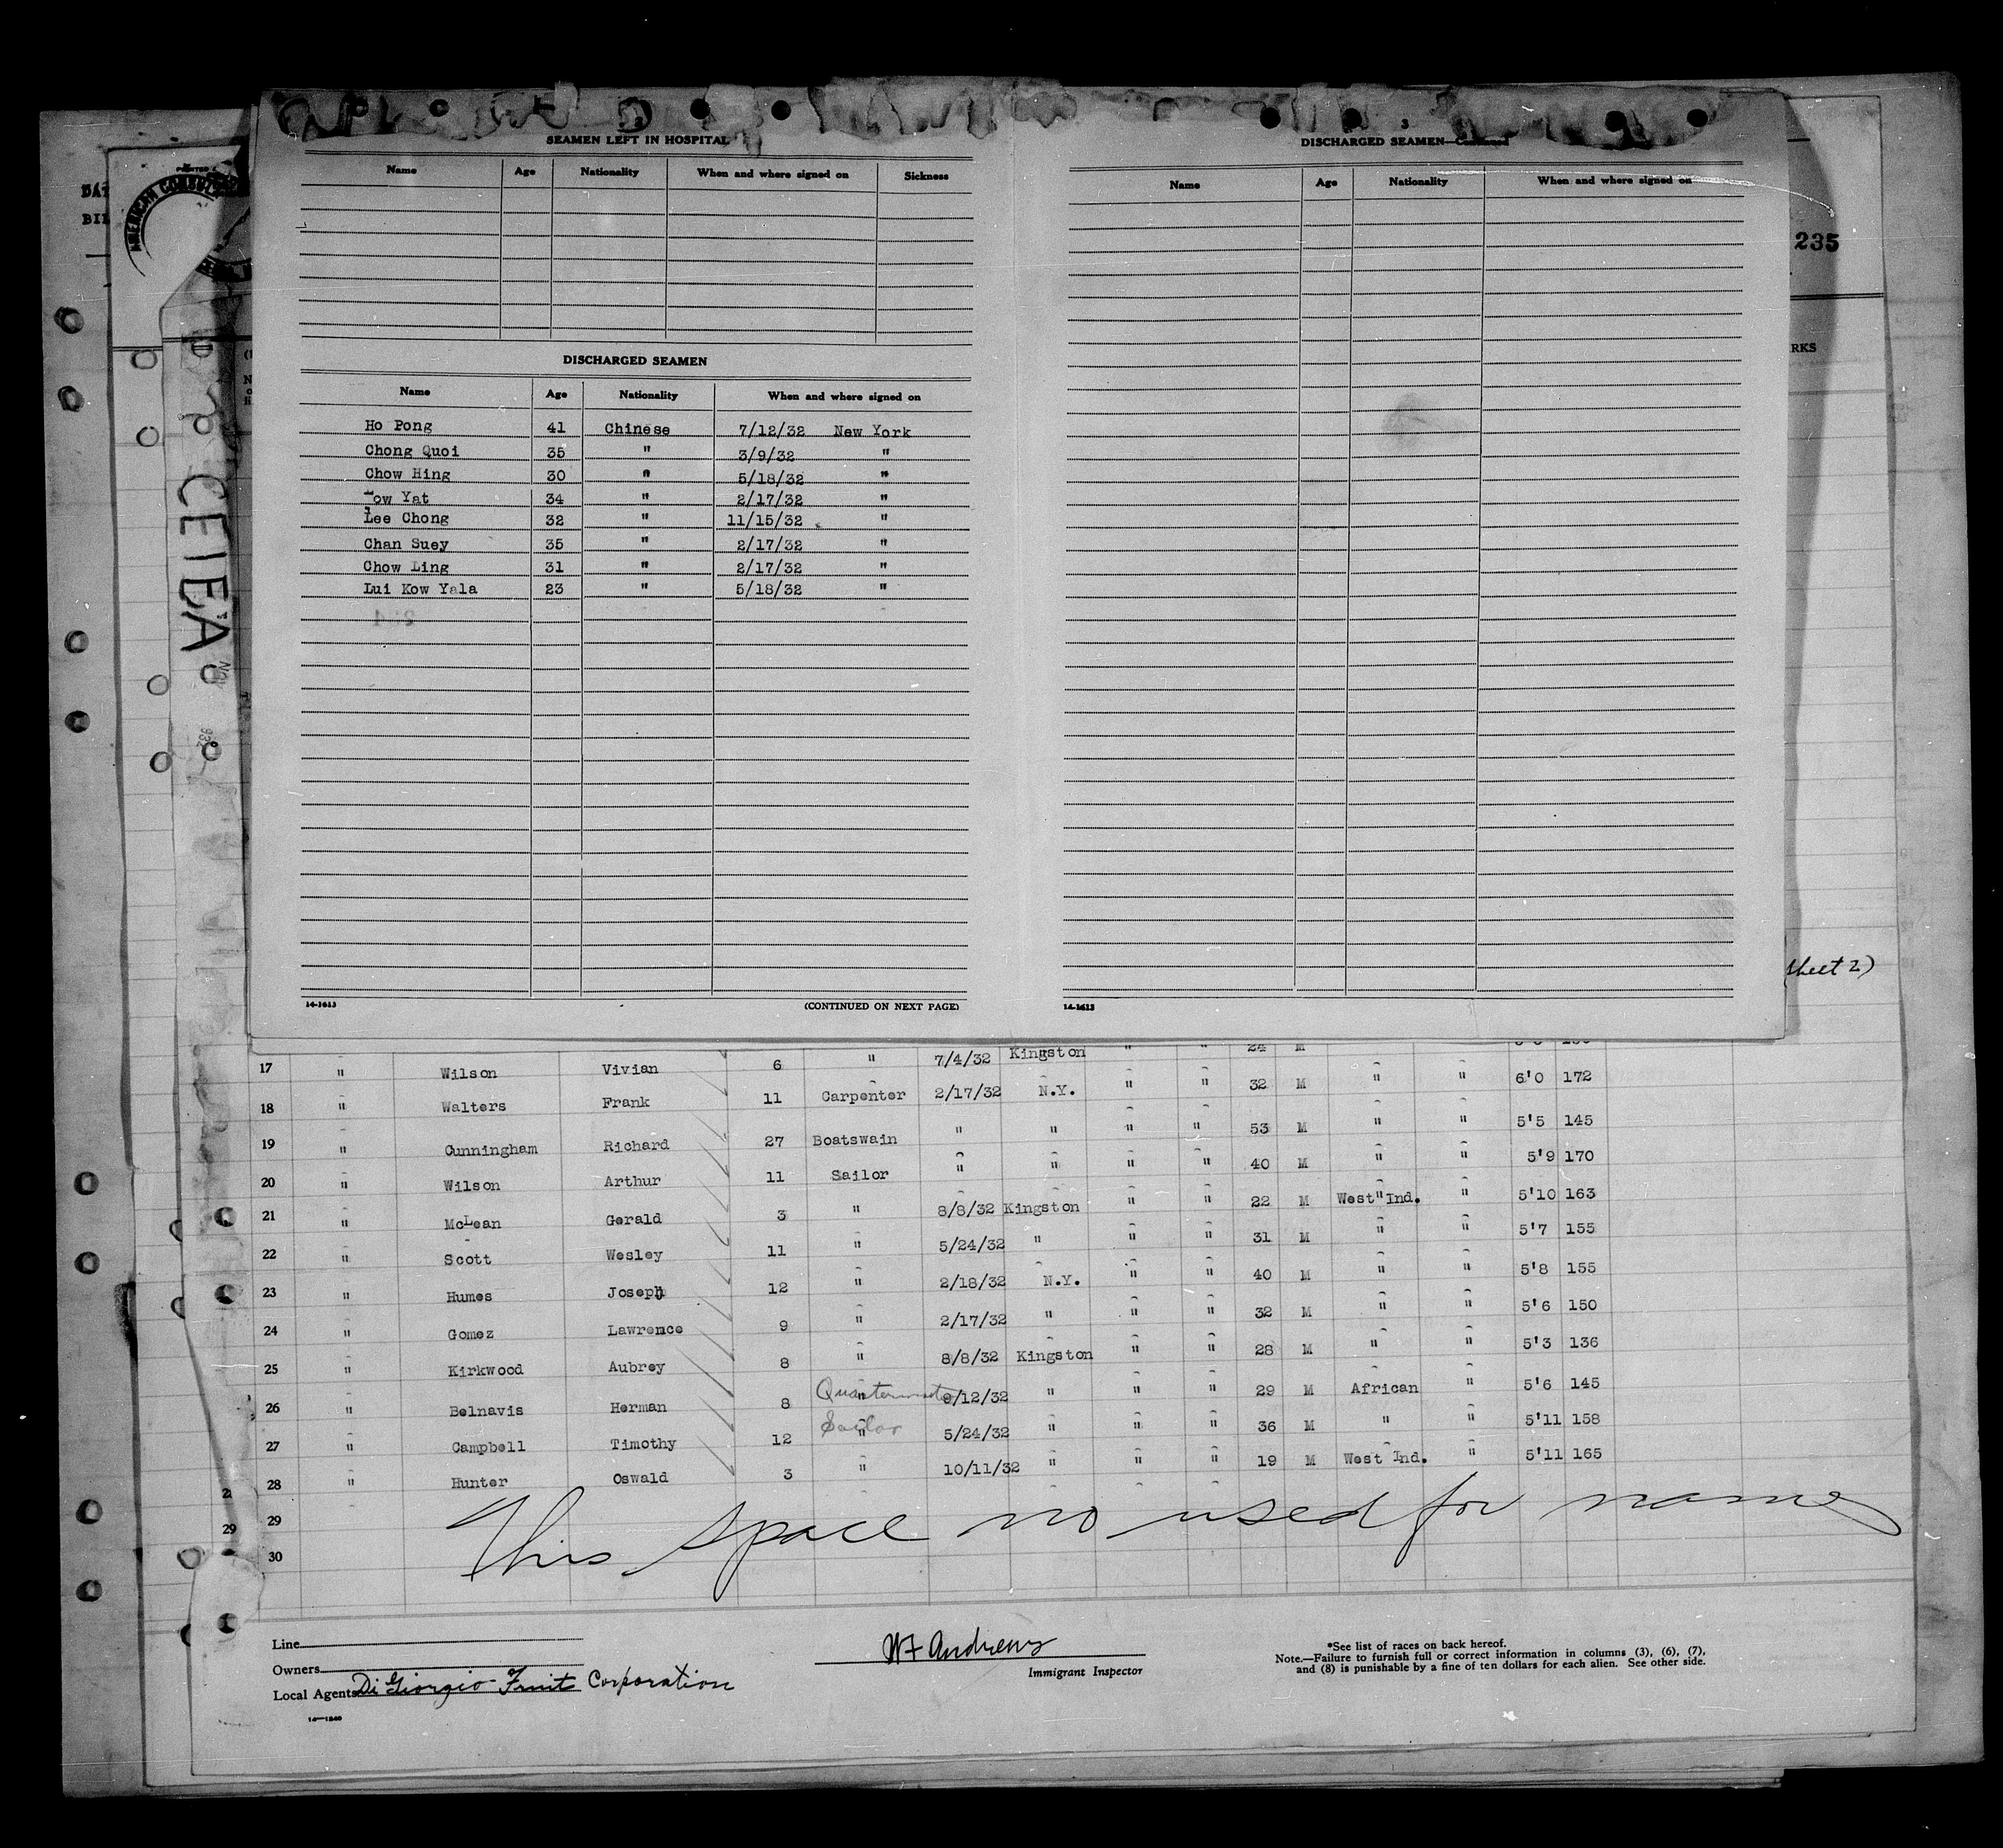 SEAMEN LEFT IN HOSPITAL
Name Age Nationality When and where signed on Sickness
DISCHARGED SEAMEN
Name Age Nationality When and where signed on
Ho Pong 41 Chinese 7/12/32 New York
Chong Quoi 35 " 3/9/32 "
Chow Hing 30 " 5/18/32 "
Low Yat 34 " 2/17/32 "
Lee Chong 32 " 11/15/32 "
Chan Suey 35 " 2/17/32 "
Chow Ling 31 " 2/17/32 "
Lui Kow Yala 23 " 5/18/32 "
14-1613 (CONTINUED ON NEXT PAGE)
3
DISCHARGED SEAMEN—Continued
Name Age Nationality When and where signed on
14-1613
AMERICAN
CEIBA
235
RKS
sheet 2)
24 M
17 " Wilson Vivian 6 " 7/4/32 Kingston " " 32 M " " 6'0 172
18 " Walters Frank 11 Carpenter 2/17/32 N.Y. " " 53 M " " 5'5 145
19 " Cunningham Richard 27 Boatswain " " " " 40 M " " 5'9 170
20 " Wilson Arthur 11 Sailor " " " " 22 M West Ind. " 5'10 163
21 " McLean Gerald 3 " 8/8/32 Kingston " " 31 M " " 5'7 155
22 " Scott Wesley 11 " 5/24/32 " " " 40 M " " 5'8 155
23 " Humes Joseph 12 " 2/18/32 N.Y. " " 32 M " " 5'6 150
24 " Gomez Lawrence 9 " 2/17/32 " " " 28 M " " 5'3 136
25 " Kirkwood Aubrey 8 " 8/8/32 Kingston " " 29 M African " 5'6 145
26 " Belnavis Herman 8 Quartermaster 9/12/32 " " " 36 M " " 5'11 158
27 " Campbell Timothy 12 Sailor 5/24/32 " " " 19 M West Ind. " 5'11 165
28 " Hunter Oswald 3 " 10/11/32 " " "
29
30
This space no used for names
Line
Owners
Local Agents Di Giorgio Fruit Corporation
14—1240
WF Andrews
Immigrant Inspector
*See list of races on back hereof.
Note.—Failure to furnish full or correct information in columns (3), (6), (7),
and (8) is punishable by a fine of ten dollars for each alien. See other side.